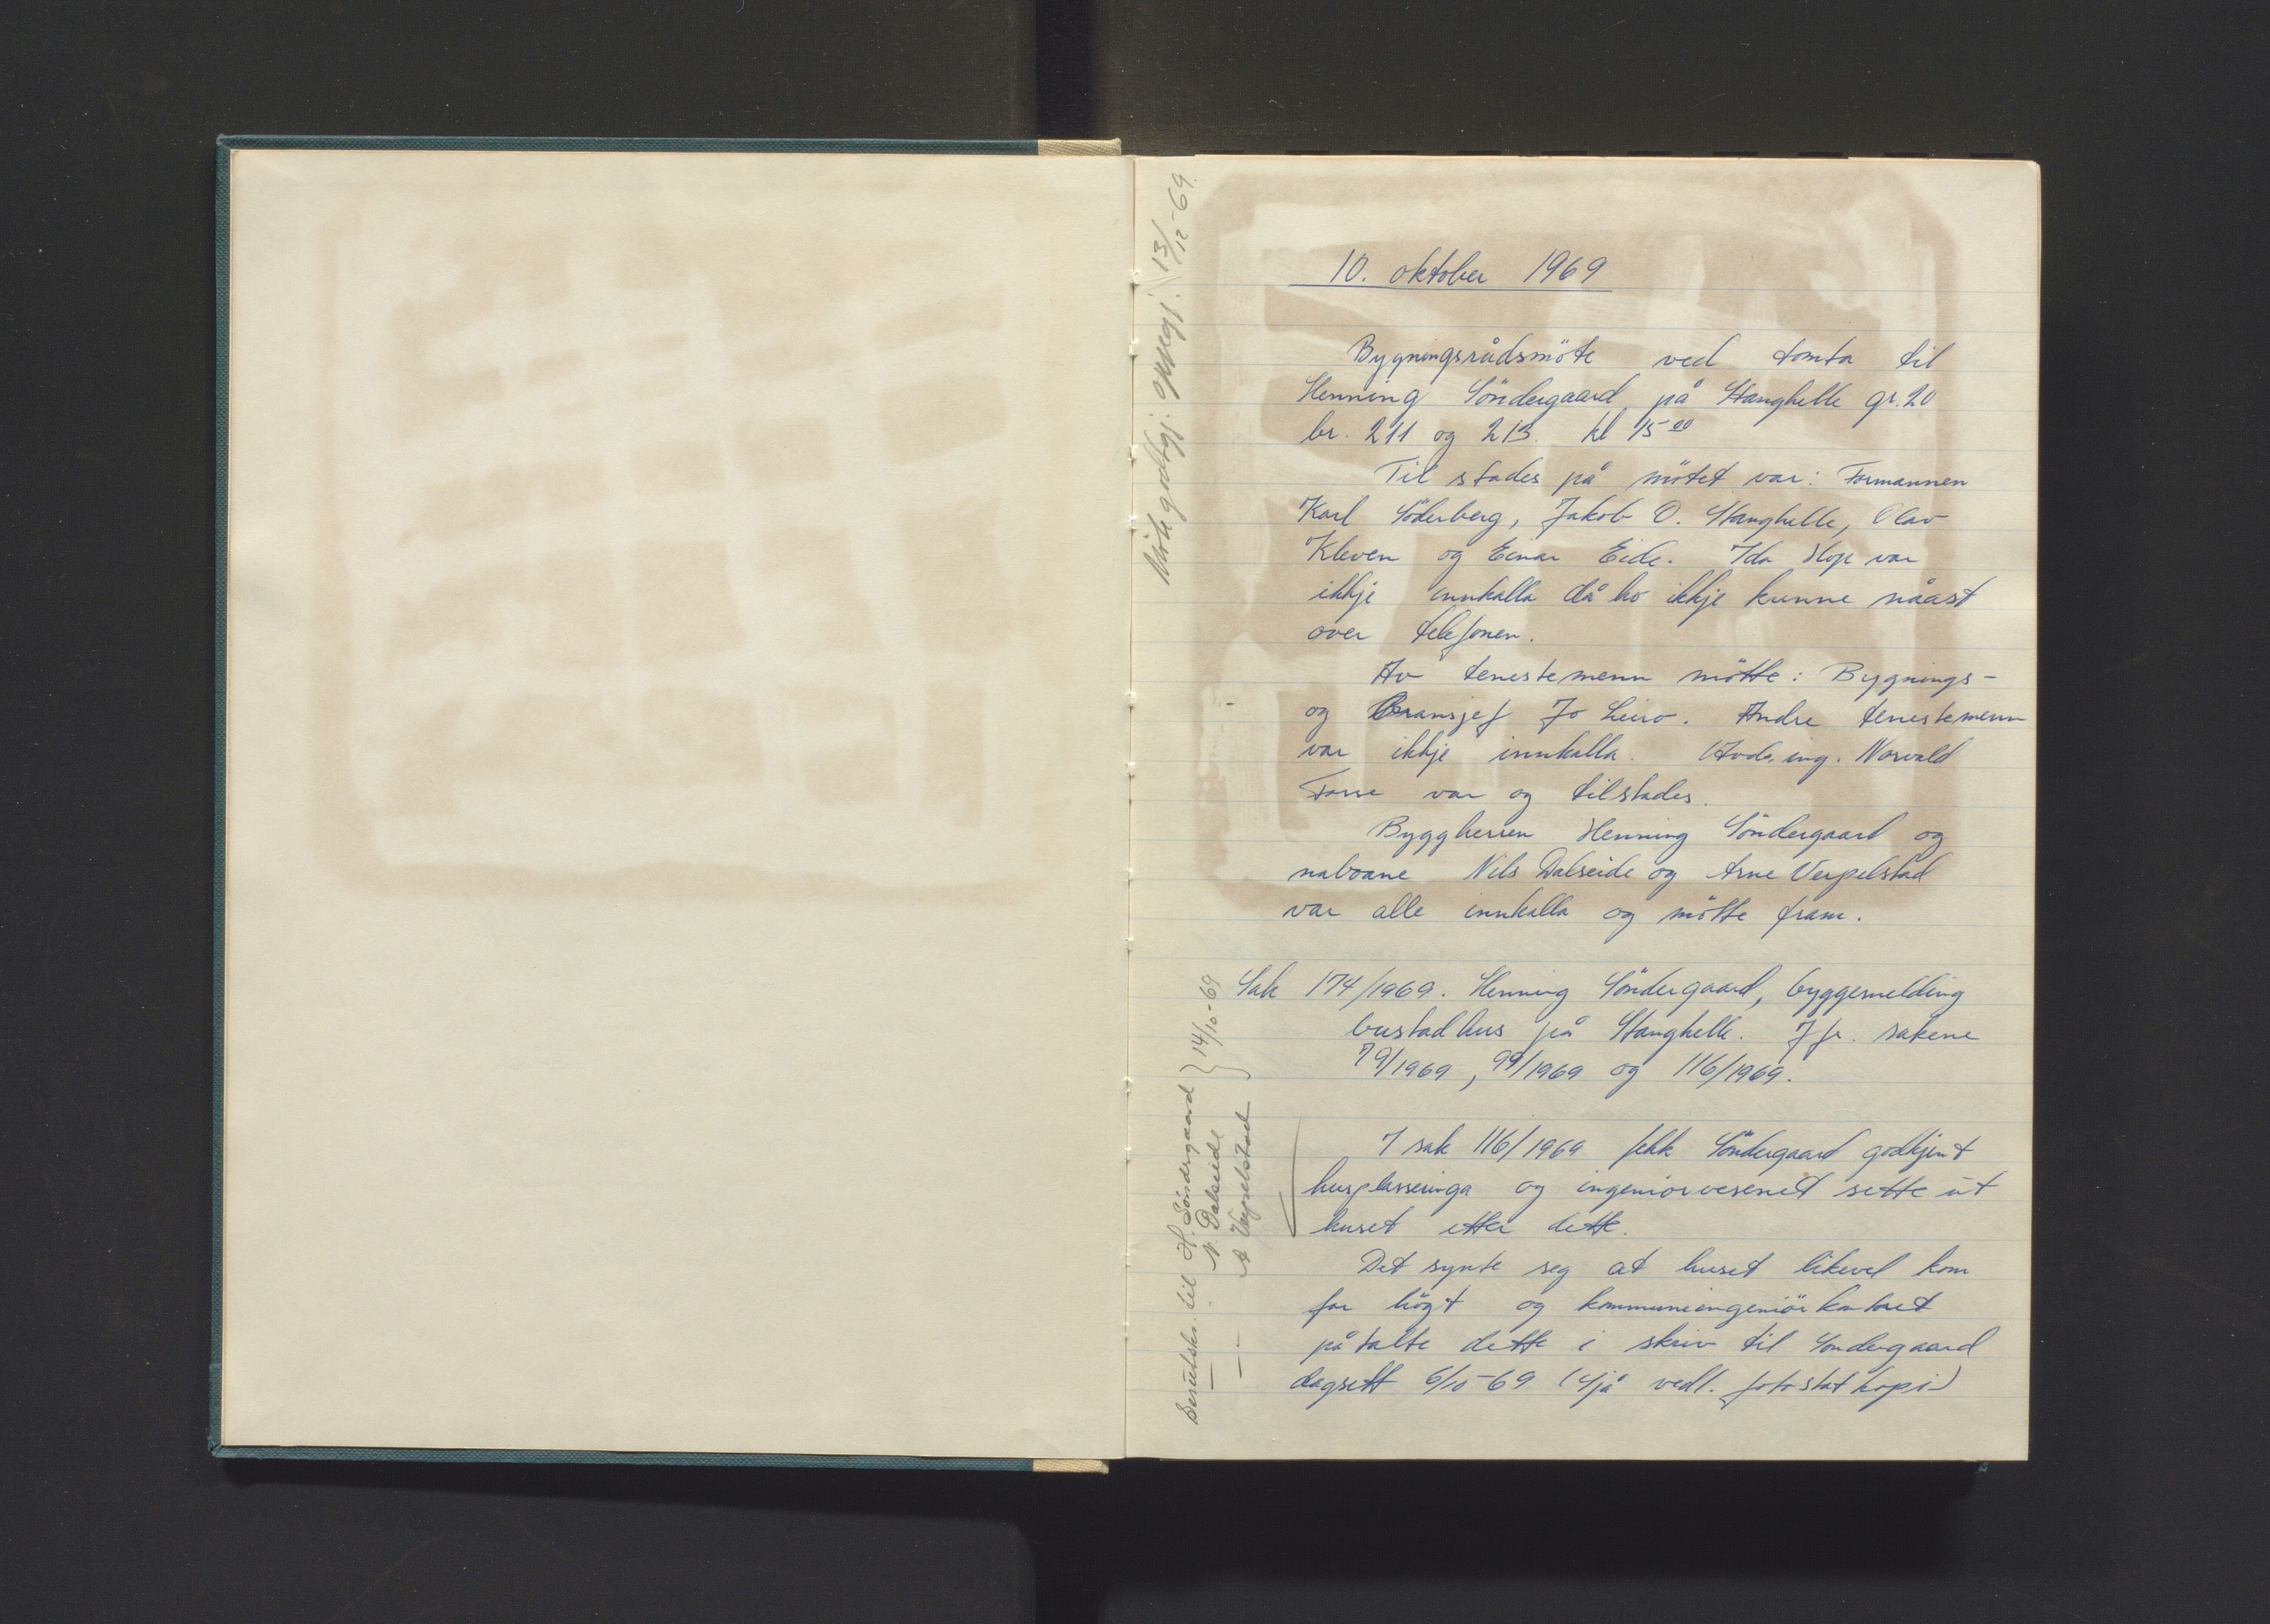 10. oktober 1969
Bygningsrådsmöte ved tomta til
Henning Söndergaard på Stanghelle gr. 20
br. 211 og 213. kl 15 00
Til stades på mötet var: Formannen
Karl Söderberg, Jakob O. Stanghelle, Olav
Kleven og Einar Eide. Ida Hope var
ikkje innkalla då ho ikkje kunne nåast
over telefonen.
Av tenestemenn mötte: Bygnings-
og Bransjef Jo Leiro. Andre tenestemenn
var ikkje innkalla. ing. Norvald
Fosse var og tilstades.
Byggherren Henning Söndergaard og
naboane Nils Dalseide og Arne Verpelstad
var alle innkalla og mötte fram.
Sak 174/1969. Henning Söndergaard, byggemelding
bustadhus på Stanghelle. Jfr. sakene
79/1969, 99/1969 og 116/1969.
I sak 116/1969 fekk Söndergaard godkjent
husplasseringa og ingeniörvesenet sette ut
huset etter dette.
Det synte seg at huset likevel kom
for högt og kommuneingeniörkontoret
påtalte dette i skriv til Sondergaard
dagsett 6/10-69 (Sjå vedl. fotostatkopi)
13/12-69.
til H. Söndergaard } 14/10-69
— N. Dalseide
— — A Verpelstad